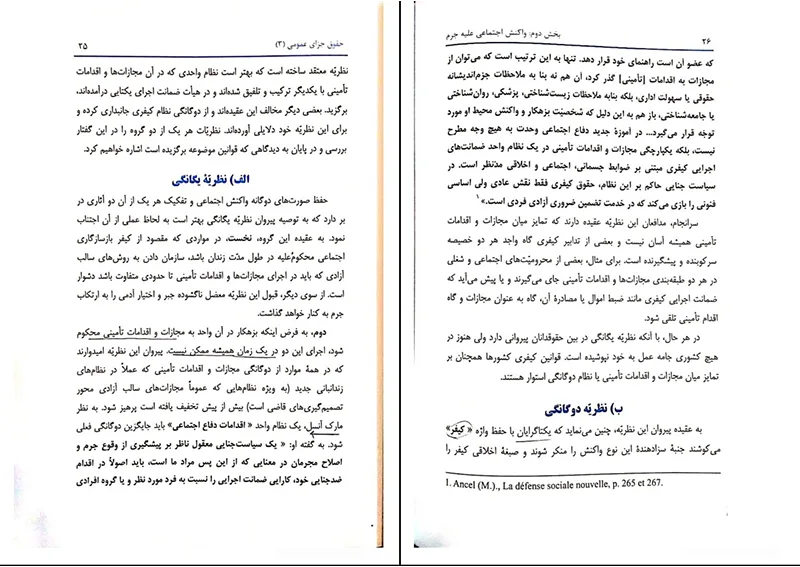 حقوق جزای عمومی (۳) ۲۵
نظریّه معتقد ساخته است که بهتر است نظام واحدی که در آن مجازات‌ها و اقدامات
تأمینی با یکدیگر ترکیب و تلفیق شده‌اند و در هیأت ضمانت اجرای یکتایی درآمده‌اند،
برگزید. بعضی دیگر مخالف این عقیده‌اند و از دوگانگی نظام کیفری جانبداری کرده و
برای این نظریّه خود دلایلی آورده‌اند. نظریّات هر یک از دو گروه را در این گفتار
بررسی و در پایان به دیدگاهی که قوانین موضوعه برگزیده است اشاره خواهیم کرد.
الف) نظریّهٔ یگانگی
حفظ صورت‌های دوگانه واکنش اجتماعی و تفکیک هر یک از آن دو آثاری در
بر دارد که به توصیه پیروان نظریّه یگانگی بهتر است به لحاظ عملی از آن اجتناب
نمود. به عقیده این گروه، نخست، در مواردی که مقصود از کیفر بازسازگاری
اجتماعی محکومٌ‌علیه در طول مدّت زندان باشد، سازمان دادن به روش‌های سالب
آزادی که باید در اجرای مجازات‌ها و اقدامات تأمینی تا حدودی متفاوت باشد دشوار
است. از سوی دیگر، قبول این نظریّه معضل ناگشوده جبر و اختیار آدمی را به ارتکاب
جرم به کنار خواهد گذاشت.
دوم، به فرض اینکه بزهکار در آن واحد به مجازات و اقدامات تأمینی محکوم
شود، اجرای این دو در یک زمان همیشه ممکن نیست. پیروان این نظریّه امیدوارند
که در همهٔ موارد از دوگانگی مجازات و اقدامات تأمینی که عملاً در نظام‌های
زندانبانی جدید (به ویژه نظام‌هایی که عموماً مجازات‌های سالب آزادی محور
تصمیم‌گیری‌های قاضی است) بیش از پیش تخفیف یافته است پرهیز شود. به نظر
مارک آنسل، یک نظام واحد «اقدامات دفاع اجتماعی» باید جایگزین دوگانگی فعلی
شود. به گفته او: « یک سیاست‌جنایی معقول ناظر بر پیشگیری از وقوع جرم و
اصلاح مجرمان در معنایی که از این پس مراد ما است، باید اصولاً در اقدام
ضدجنایی خود، کارایی ضمانت اجرایی را نسبت به فرد مورد نظر و یا گروه افرادی
۲۶ بخش دوم: واکنش اجتماعی علیه جرم
که عضو آن است راهنمای خود قرار دهد. تنها به این ترتیب است که می‌توان از
مجازات به اقدامات [تأمینی] گذر کرد، آن هم نه بنا به ملاحظات جزم‌اندیشانه
حقوقی یا سهولت اداری، بلکه بنابه ملاحظات زیست‌شناختی، پزشکی، روان‌شناختی
یا جامعه‌شناختی، باز هم به این دلیل که شخصیّت بزهکار و واکنش محیط او مورد
توجّه قرار می‌گیرد... در آموزهٔ جدید دفاع اجتماعی وحدت به هیچ وجه مطرح
نیست، بلکه یکپارچگی مجازات و اقدامات تأمینی در یک نظام واحد ضمانت‌های
اجرایی کیفری مبتنی بر ضوابط جسمانی، اجتماعی و اخلاقی مدّنظر است. در
سیاست جنایی حاکم بر این نظام، حقوق کیفری فقط نقش عادی ولی اساسی
فنونی را بازی می‌کند که در خدمت تضمین ضروری آزادی فردی است.»۱
سرانجام، مدافعان این نظریّه عقیده دارند که تمایز میان مجازات و اقدامات
تأمینی همیشه آسان نیست و بعضی از تدابیر کیفری گاه واجد هر دو خصیصه
سرکوبنده و پیشگیرنده است. برای مثال، بعضی از محرومیّت‌های اجتماعی و شغلی
در هر دو طبقه‌بندی مجازات‌ها و اقدامات تأمینی جای می‌گیرند و یا پیش می‌آید که
ضمانت اجرایی کیفری مانند ضبط اموال یا مصادرهٔ آن، گاه به عنوان مجازات و گاه
اقدام تأمینی تلقی شود.
در هر حال، با آنکه نظریّه یگانگی در بین حقوقدانان پیروانی دارد ولی هنوز در
هیچ کشوری جامه عمل به خود نپوشیده است. قوانین کیفری کشورها همچنان بر
تمایز میان مجازات و اقدامات تأمینی یا نظام دوگانگی استوار هستند.
ب) نظریّه دوگانگی
به عقیده پیروان این نظریّه، چنین می‌نماید که یکتاگرایان با حفظ واژه «کیفر»
می‌کوشند جنبهٔ سزادهندهٔ این نوع واکنش را منکر شوند و صبغهٔ اخلاقی کیفر را
1. Ancel (M.)., La défense sociale nouvelle, p. 265 et 267.